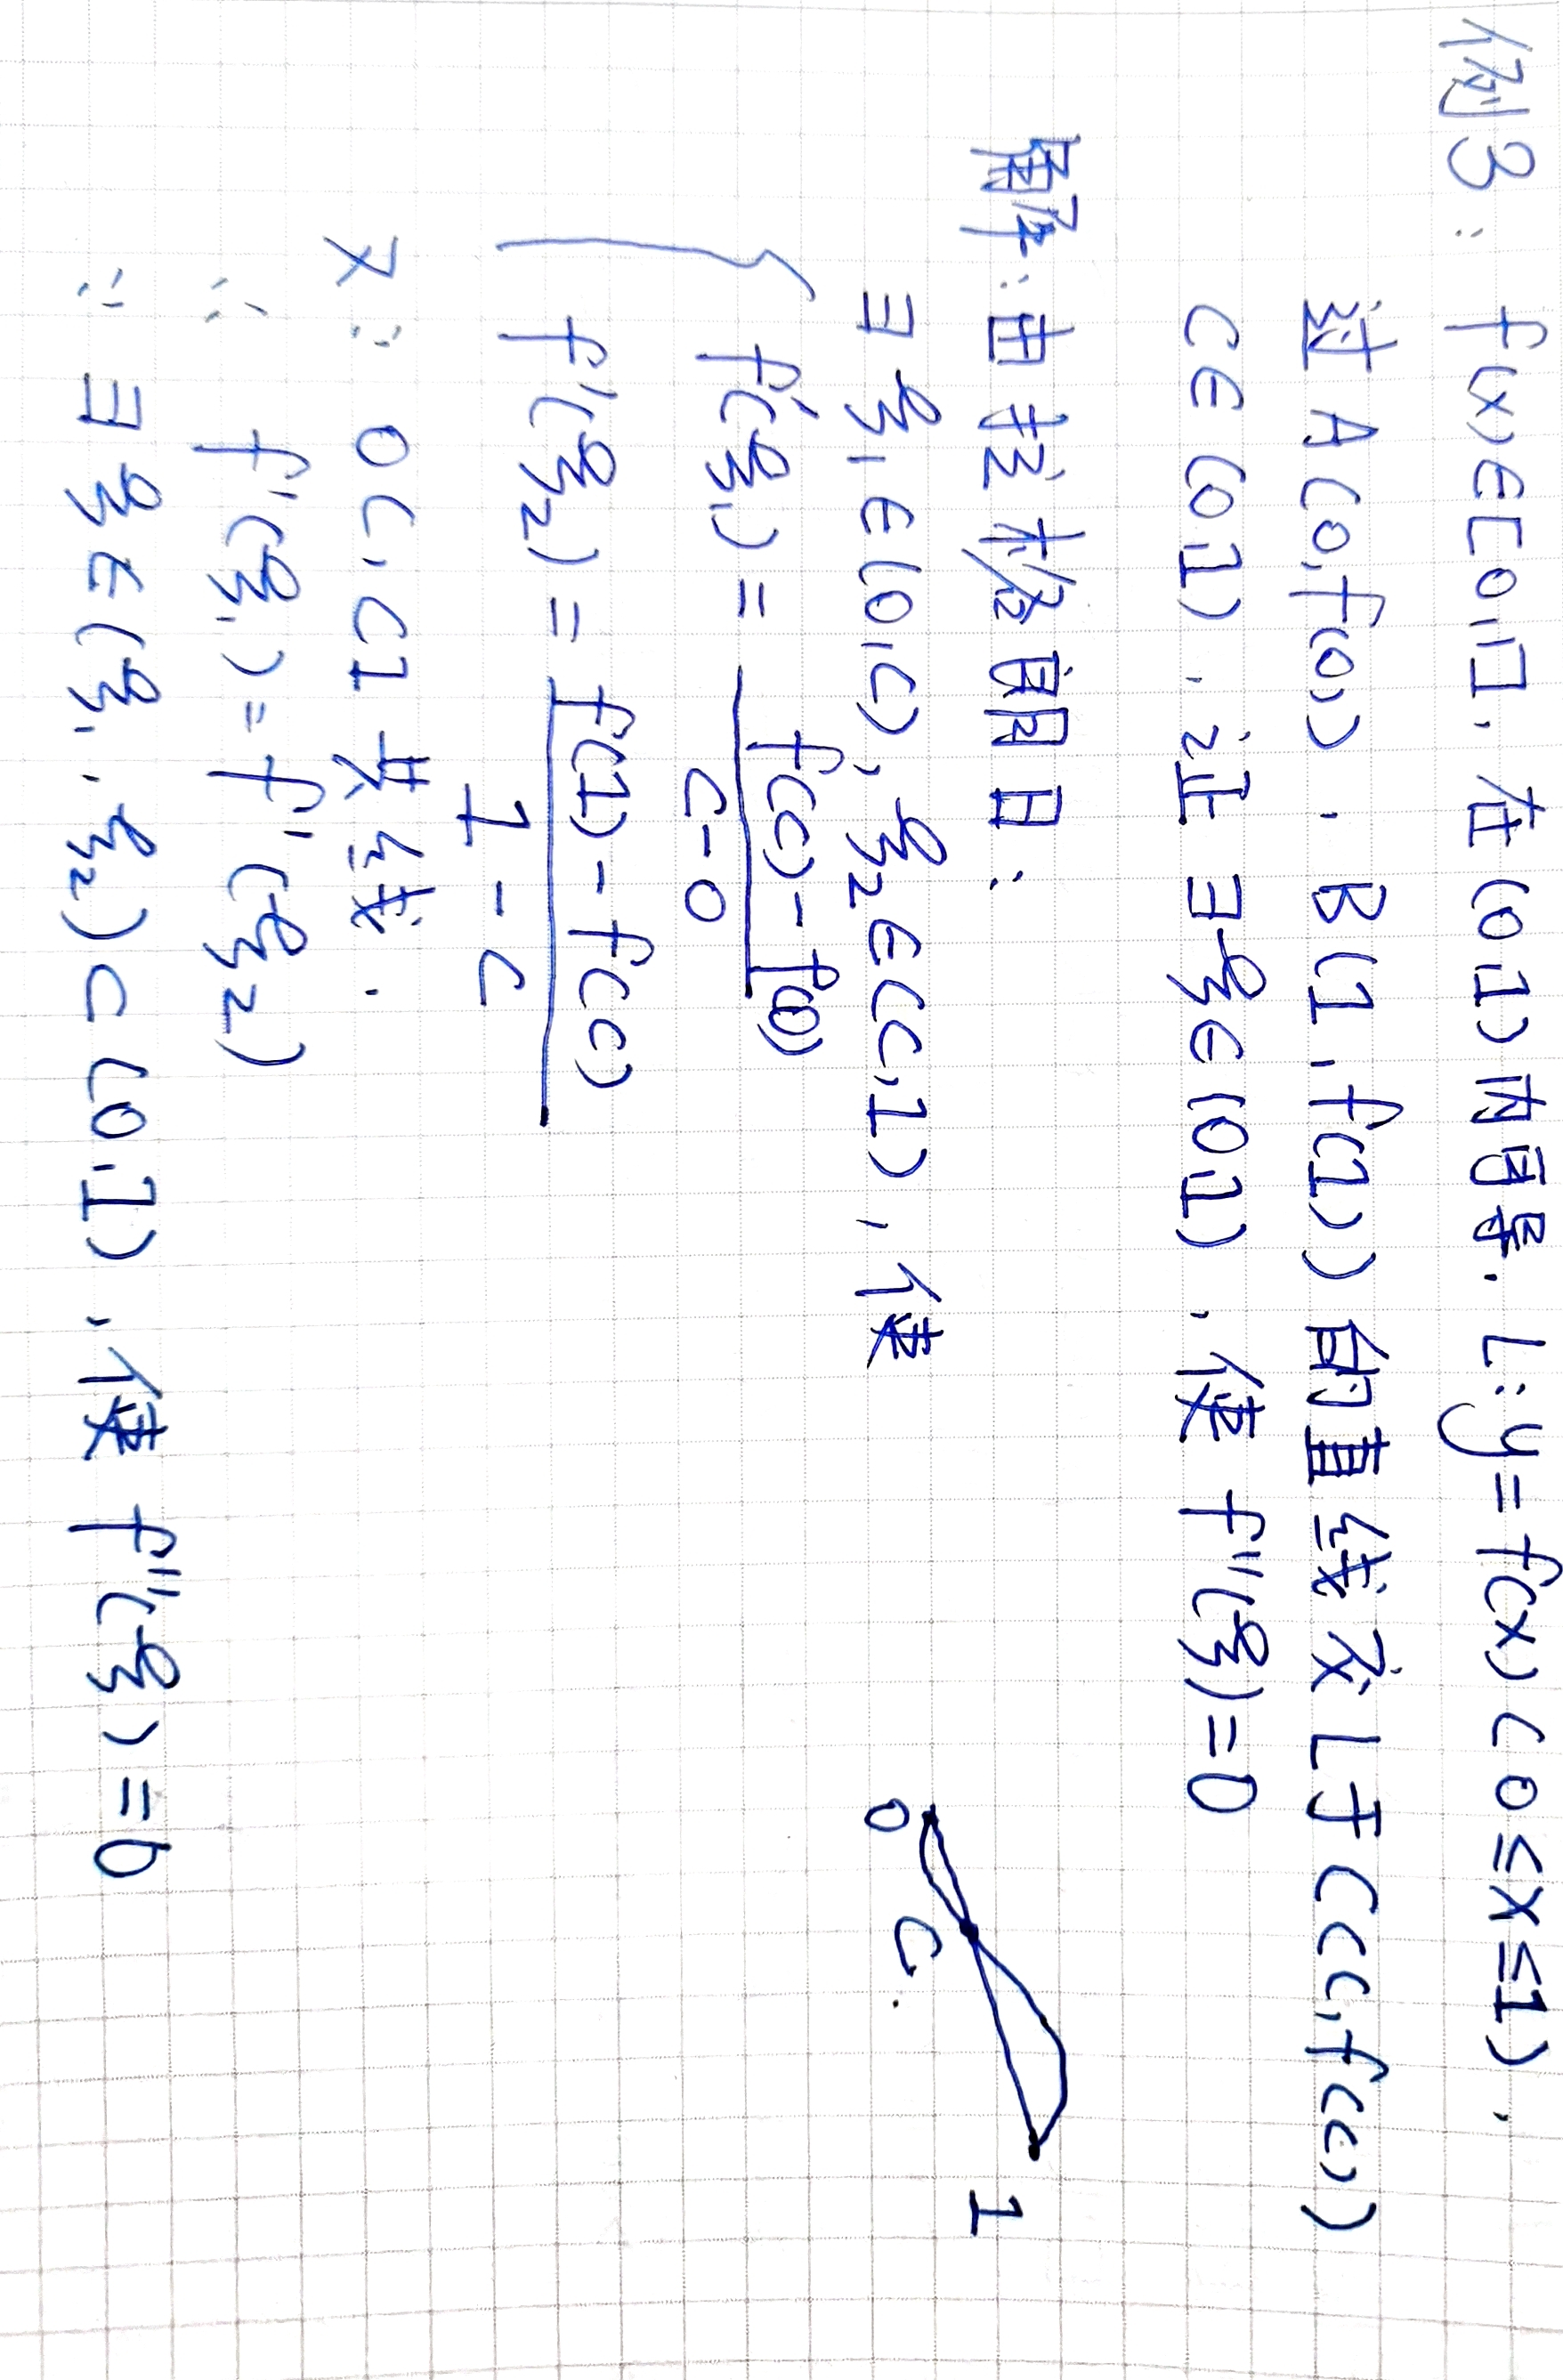 例3: f(x)∈[0,1], 在(0,1)内可导. L:y=f(x)(0≤x≤1),
过A(0,f(0)), B(1,f(1))的直线交L于C(c,f(c))
C∈(0,1), 证∃ξ∈(0,1), 使f''(ξ)=0
解:由拉格朗日:
∃ξ₁∈(0,c), ξ₂∈(c,1), 使
f'(ξ₁) = f(c)-f(0) / c-0
f'(ξ₂) = f(1)-f(c) / 1-c
0 C. 1
又∵0C,C1共线.
∴ f'(ξ₁)=f'(ξ₂)
∴ ∃ξ∈(ξ₁,ξ₂)⊂(0,1), 使f''(ξ)=0